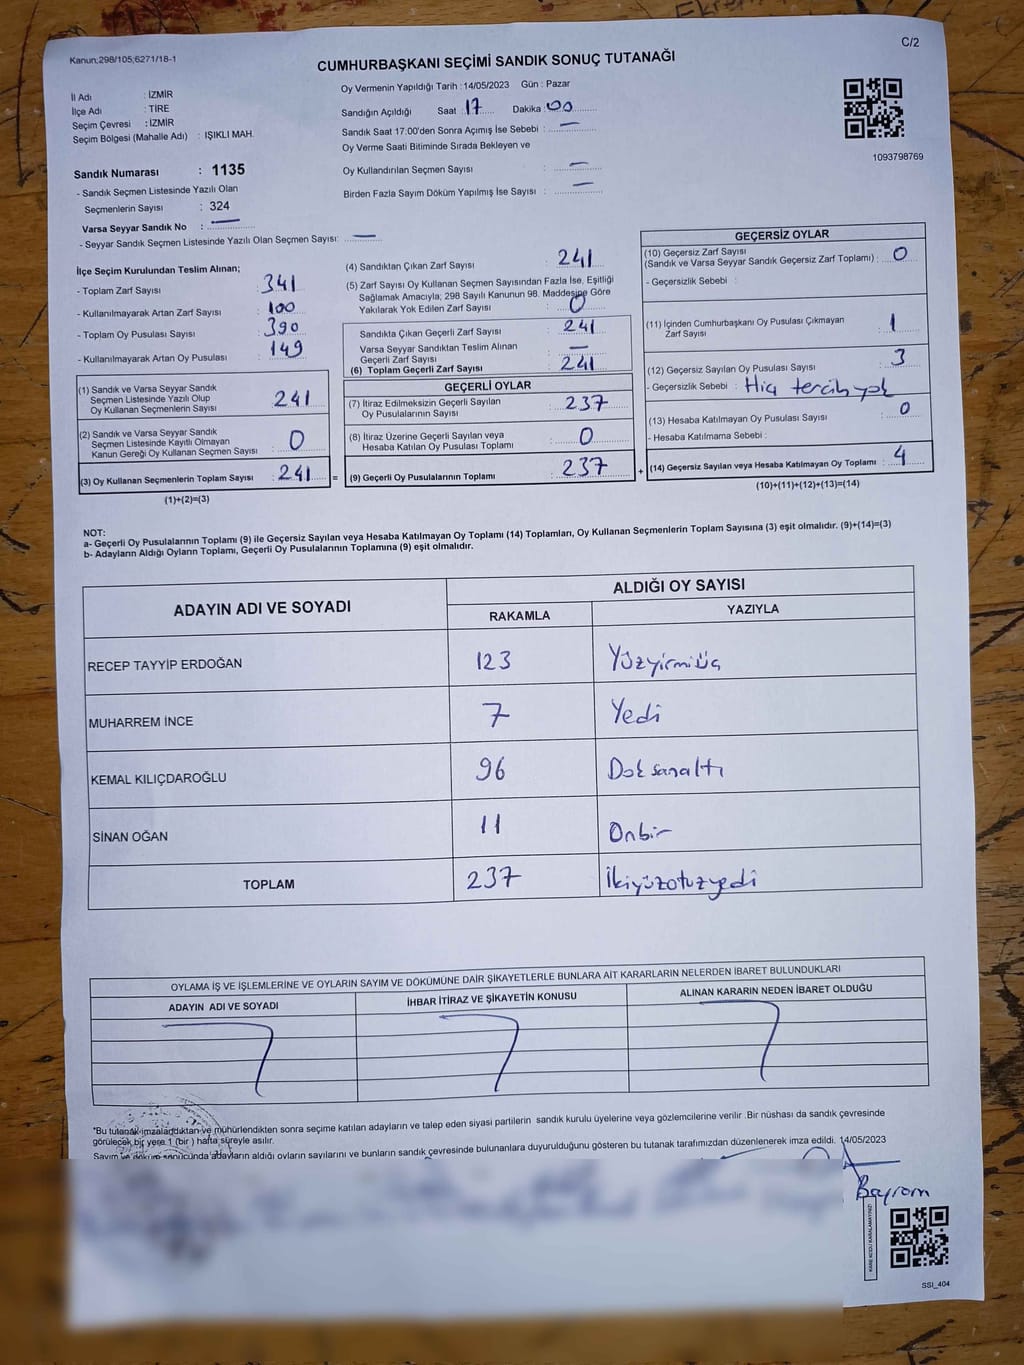 Kanun;298/105;6271/18-1
C/2
CUMHURBAŞKANI SEÇİMİ SANDIK SONUÇ TUTANAĞI
Oy Vermenin Yapıldığı Tarih :14/05/2023 Gün : Pazar
İl Adı : İZMİR
İlçe Adı : TİRE
Seçim Çevresi : İZMİR
Seçim Bölgesi (Mahalle Adı) : IŞIKLI MAH.
Sandığın Açıldığı Saat : 17 Dakika : 00
Sandık Saat 17:00'den Sonra Açımış İse Sebebi : —
Oy Verme Saati Bitiminde Sırada Bekleyen ve
Oy Kullandırılan Seçmen Sayısı : —
Birden Fazla Sayım Döküm Yapılmış İse Sayısı : —
1093798769
Sandık Numarası : 1135
- Sandık Seçmen Listesinde Yazılı Olan
Seçmenlerin Sayısı : 324
Varsa Seyyar Sandık No : —
- Seyyar Sandık Seçmen Listesinde Yazılı Olan Seçmen Sayısı: —
İlçe Seçim Kurulundan Teslim Alınan;
- Toplam Zarf Sayısı : 341
- Kullanılmayarak Artan Zarf Sayısı : 100
- Toplam Oy Pusulası Sayısı : 390
- Kullanılmayarak Artan Oy Pusulası : 149
(1) Sandık ve Varsa Seyyar Sandık
Seçmen Listesinde Yazılı Olup
Oy Kullanan Seçmenlerin Sayısı : 241
(2) Sandık ve Varsa Seyyar Sandık
Seçmen Listesinde Kayıtlı Olmayan
Kanun Gereği Oy Kullanan Seçmen Sayısı : 0
(3) Oy Kullanan Seçmenlerin Toplam Sayısı : 241 =
(1)+(2)=(3)
(4) Sandıktan Çıkan Zarf Sayısı : 241
(5) Zarf Sayısı Oy Kullanan Seçmen Sayısından Fazla İse, Eşitliği
Sağlamak Amacıyla; 298 Sayılı Kanunun 98. Maddesine Göre
Yakılarak Yok Edilen Zarf Sayısı : 0
Sandıkta Çıkan Geçerli Zarf Sayısı : 241
Varsa Seyyar Sandıktan Teslim Alınan
Geçerli Zarf Sayısı : —
(6) Toplam Geçerli Zarf Sayısı : 241
GEÇERLİ OYLAR
(7) İtiraz Edilmeksizin Geçerli Sayılan
Oy Pusulalarının Sayısı : 237
(8) İtiraz Üzerine Geçerli Sayılan veya
Hesaba Katılan Oy Pusulası Toplamı : 0
(9) Geçerli Oy Pusulalarının Toplamı : 237 +
GEÇERSİZ OYLAR
(10) Geçersiz Zarf Sayısı
(Sandık ve Varsa Seyyar Sandık Geçersiz Zarf Toplamı) : 0
- Geçersizlik Sebebi :
(11) İçinden Cumhurbaşkanı Oy Pusulası Çıkmayan
Zarf Sayısı : 1
(12) Geçersiz Sayılan Oy Pusulası Sayısı : 3
- Geçersizlik Sebebi : Hiç tercih yok
(13) Hesaba Katılmayan Oy Pusulası Sayısı : 0
- Hesaba Katılmama Sebebi :
(14) Geçersiz Sayılan veya Hesaba Katılmayan Oy Toplamı : 4
(10)+(11)+(12)+(13)=(14)
NOT:
a- Geçerli Oy Pusulalarının Toplamı (9) ile Geçersiz Sayılan veya Hesaba Katılmayan Oy Toplamı (14) Toplamları, Oy Kullanan Seçmenlerin Toplam Sayısına (3) eşit olmalıdır. (9)+(14)=(3)
b- Adayların Aldığı Oyların Toplamı, Geçerli Oy Pusulalarının Toplamına (9) eşit olmalıdır.
ADAYIN ADI VE SOYADI
ALDIĞI OY SAYISI
RAKAMLA YAZIYLA
RECEP TAYYİP ERDOĞAN 123 Yüzyirmiüç
MUHARREM İNCE 7 Yedi
KEMAL KILIÇDAROĞLU 96 Doksanaltı
SİNAN OĞAN 11 Onbir
TOPLAM 237 İkiyüzotuzyedi
OYLAMA İŞ VE İŞLEMLERİNE VE OYLARIN SAYIM VE DÖKÜMÜNE DAİR ŞİKAYETLERLE BUNLARA AİT KARARLARIN NELERDEN İBARET BULUNDUKLARI
ADAYIN ADI VE SOYADI İHBAR İTİRAZ VE ŞİKAYETİN KONUSU ALINAN KARARIN NEDEN İBARET OLDUĞU
*Bu tutanak imzalandıktan ve mühürlendikten sonra seçime katılan adayların ve talep eden siyasi partilerin sandık kurulu üyelerine veya gözlemcilerine verilir .Bir nüshası da sandık çevresinde
görülecek bir yere 1 (bir ) hafta süreyle asılır.
Sayım ve döküm sonucunda adayların aldığı oyların sayılarını ve bunların sandık çevresinde bulunanlara duyurulduğunu gösteren bu tutanak tarafımızdan düzenlenerek imza edildi. 14/05/2023
Bayram
KARE KODU KARALAMAYINIZ!
SSI_404